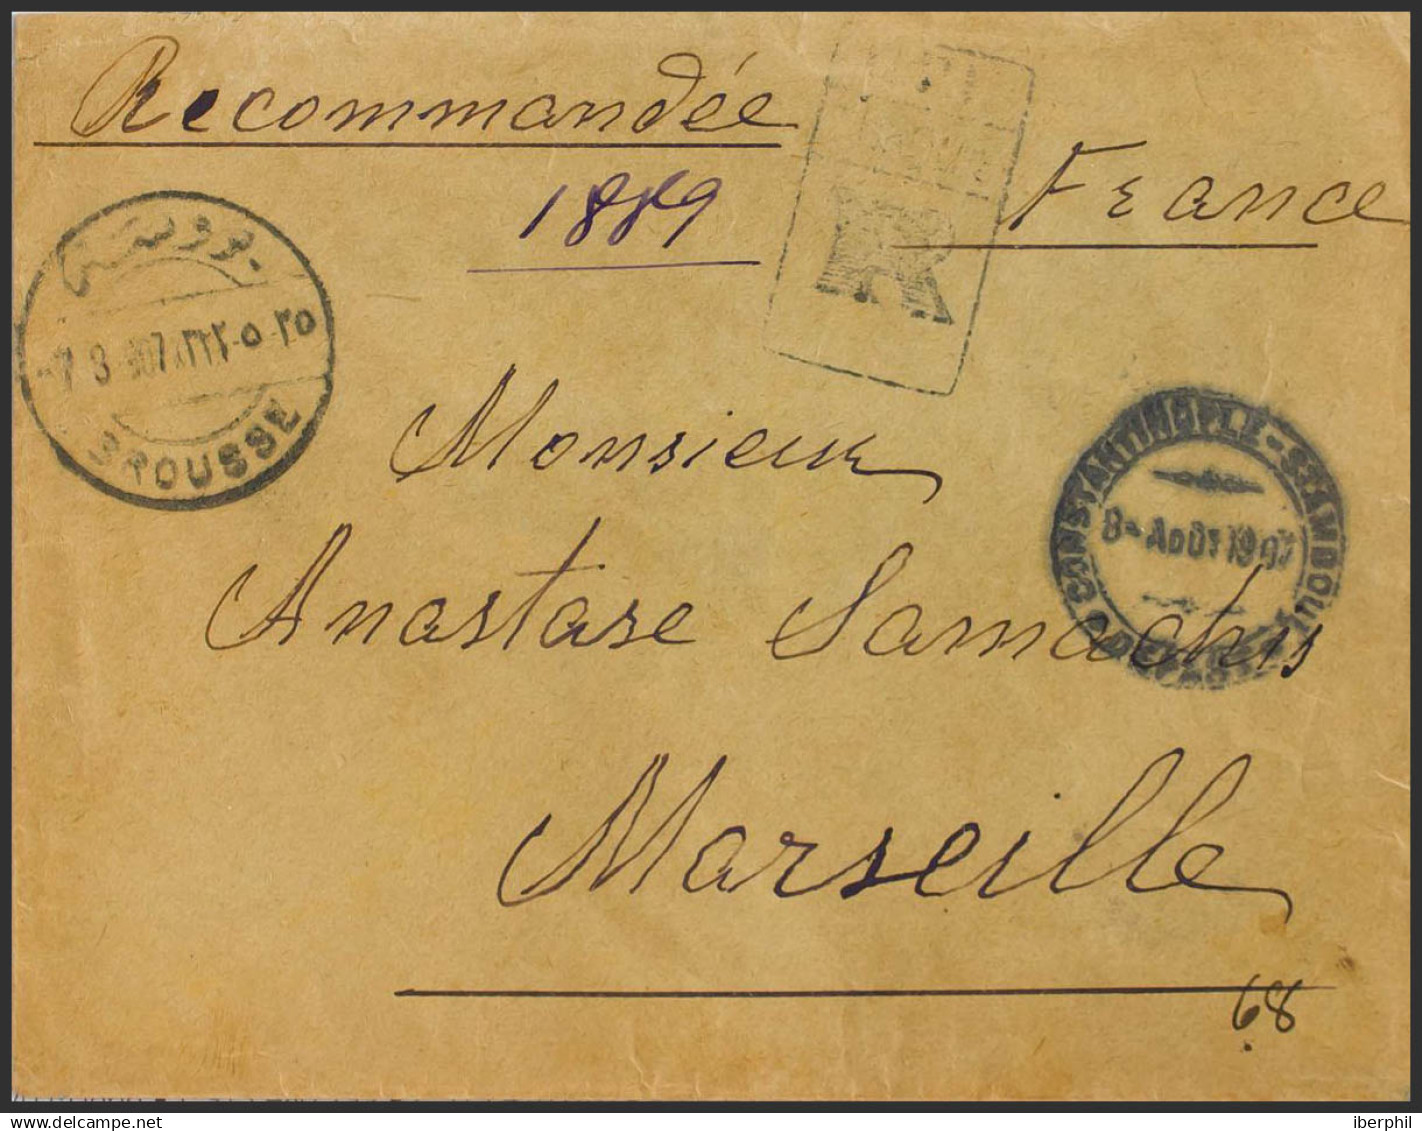 Recommandée
1889
France
R
بروسه
-7 8 907 ٣٢٣-٥-٢٥
BROUSSE
Monsieur
CONSTANTINOPLE-STAMBOUL
8-AOUT 1907
DEPART
Anastase Samachis
Marseille
68
iberphil